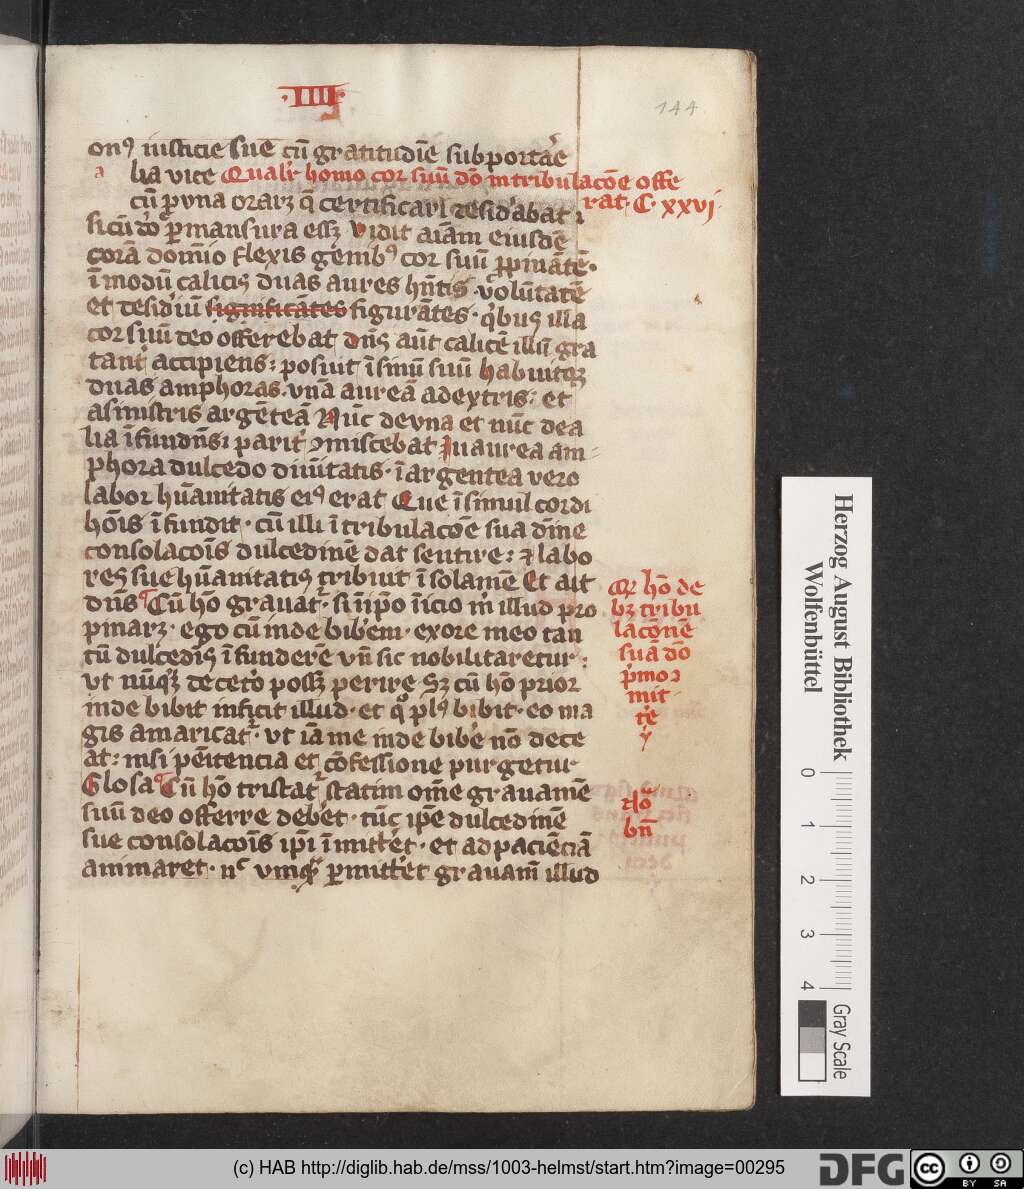 ·IIII·
144
on9 iusticie sue cū gratitudīe subportāe
a lia vice Qualr homo cor suū dō in tribulacōe offe
rat· C· xxvi
cū pro vna orarz q̄ certificari desid'abat ī
cōrā domīo flexis genib9 cor suū
ī modū calicis duas aures hn̄tis· volūtatē
et desid'iū significātes figurātes· q'bus illa
cor suū deo offerebat dn̄s aūt calicē illū gra
tant' accipiens: posuit ī sinū suū habuitqz
duas amphoras· vnā aureā a dextris: et
a sinistris argēteā Nūc de vna et nūc de a
lia īfundn̄s: parit' ɔmiscebat In aurea am=
phora dulcedo diuītatis· ī argentea vero
labor hūanitatis ei9 erat Que ī simul cordi
hōīs īfundit· cū illi ī tribulacōe sua dīne
consolacōīs dulcedinē dat sentire: ⁊ labo
res sue hūanitatis tribuit ī solamē Et ait
dn̄s Cū hō grauat'· si īpō īicio m' illud pro
pinarz· ego cū inde bib'em· ex ore meo tan
tū dulcedīs īfunderē vn̄ sic nobilitaretur:
vt nūqz decet'o possz perire Sz cū hō prior
inde bibit inficit illud· et q° pl9 bibit· eo ma
gis amaricat'· vt iā me inde bib'e nō dece
at: nisi pēitencia et cōfessione purgetur
Glosa Cū hō tristat' statim om̄e grauamē
suū deo offerre deb'et· tūc ipe dulcedinē
sue consolacōīs ip̄i īmitt'et· et ad paciēciā
animaret· nc vmqz pmitt'et grauam̄ illud
Qr hō de
bz tribu
lacōnē
suā dō
p'mo
mit
t'e
hō
bn̄
Herzog August Bibliothek
Wolfenbüttel
0 1 2 3 4
Gray Scale
(c) HAB http://diglib.hab.de/mss/1003-helmst/start.htm?image=00295
DFG
cc BY SA